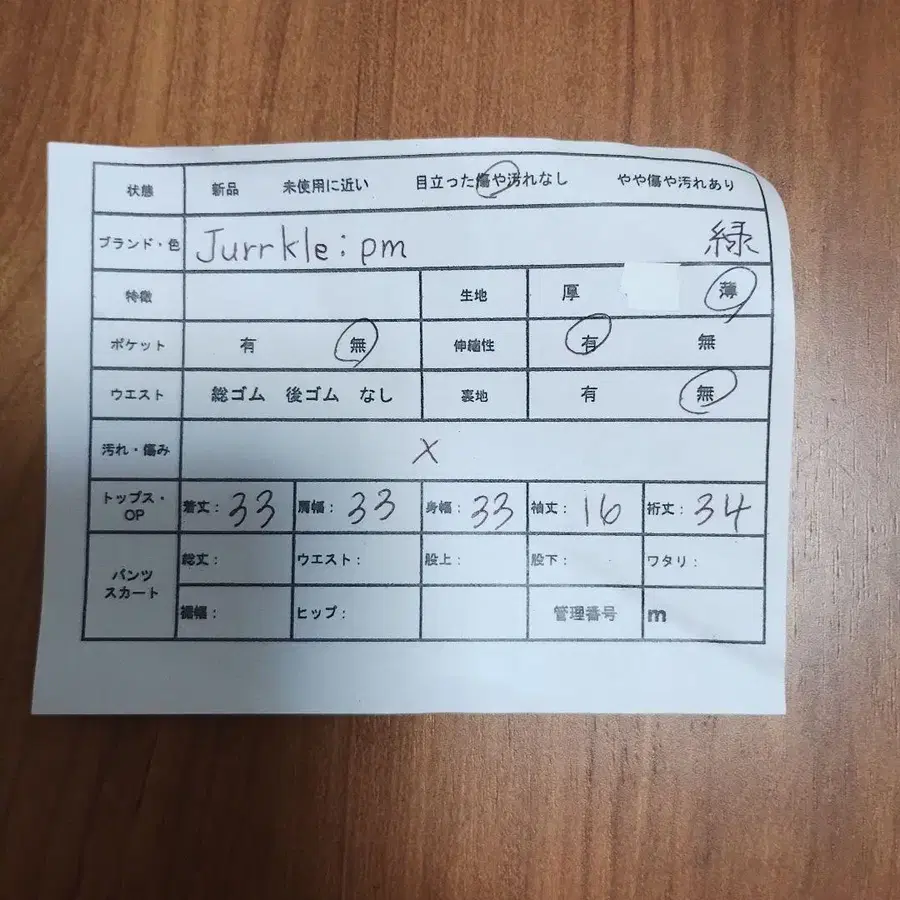 状態 新品 未使用に近い 目立った傷や汚れなし やや傷や汚れあり
ブランド・色 Jurrkle:pm 緑
特徴 生地 厚 薄
ポケット 有 無 伸縮性 有 無
ウエスト 総ゴム 後ゴム なし 裏地 有 無
汚れ・傷み ×
トップス・OP 着丈: 33 肩幅: 33 身幅: 33 袖丈: 16 裄丈: 34
パンツ スカート 総丈: ウエスト: 股上: 股下: ワタリ:
裾幅: ヒップ: 管理番号 m